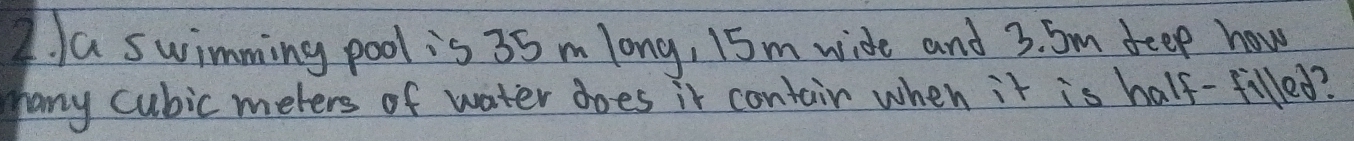 2.) a swimming pool is 35 m long, 15m wide and 3.5m deep how
many cubic meters of water does it contain when it is half-filled?